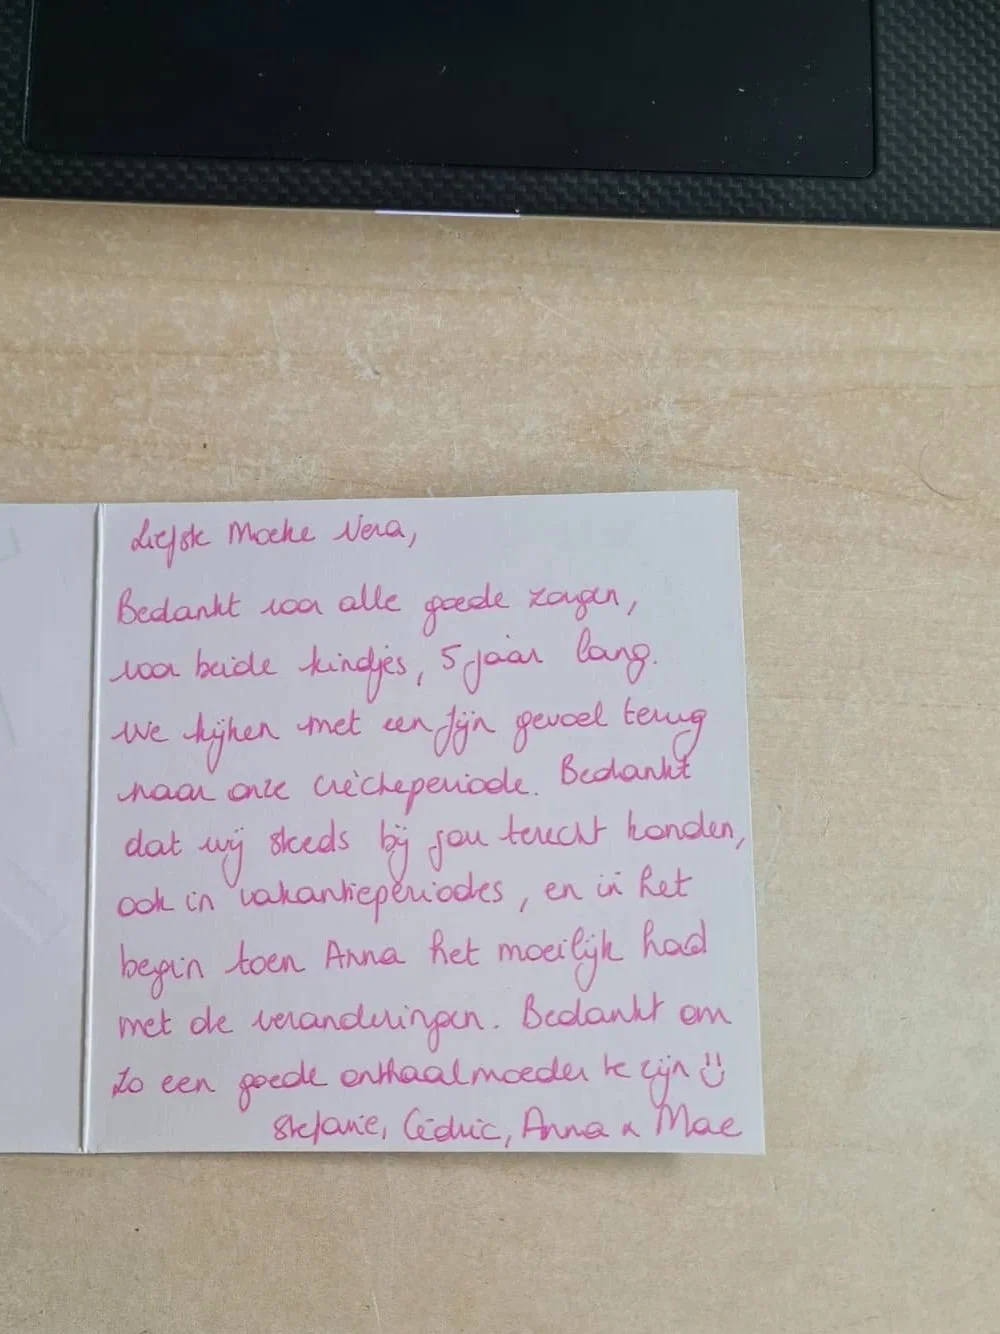 Liefste Moeke Vera,
Bedankt voor alle goede zorgen,
voor beide kindjes, 5 jaar lang.
We kijken met een fijn gevoel terug
naar onze crècheperiode. Bedankt
dat wij steeds bij jou terecht konden,
ook in vakantieperiodes, en in het
begin toen Anna het moeilijk had
met de veranderingen. Bedankt om
zo een goede onthaalmoeder te zijn :)
Stefanie, Cédric, Anna & Mae